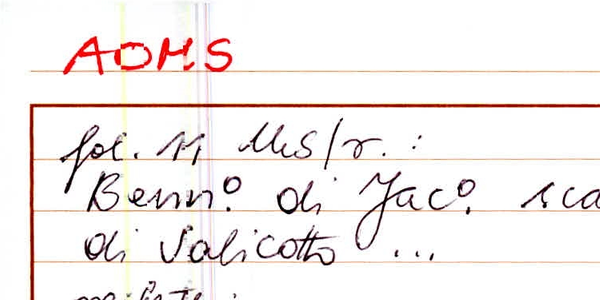 AOMS
fol. 11 MS/r. :
Benn.º di Jac.º sca
di Salicotto ...